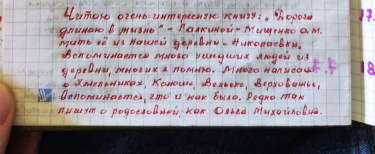 Читаю очень интересную книгу: „Дорога
длиною в жизнь" - Палкиной-Мищенко О.М.
мать её из нашей деревни - Николаевки,
Вспоминается много ушедших людей из
деревни, многих я помню. Много написано
о Хмельниках, Колюше, Вельске, Верховажье,
Вспоминается, что и как было. Редко так
пишут о родословной, как Ольга Михайловна.